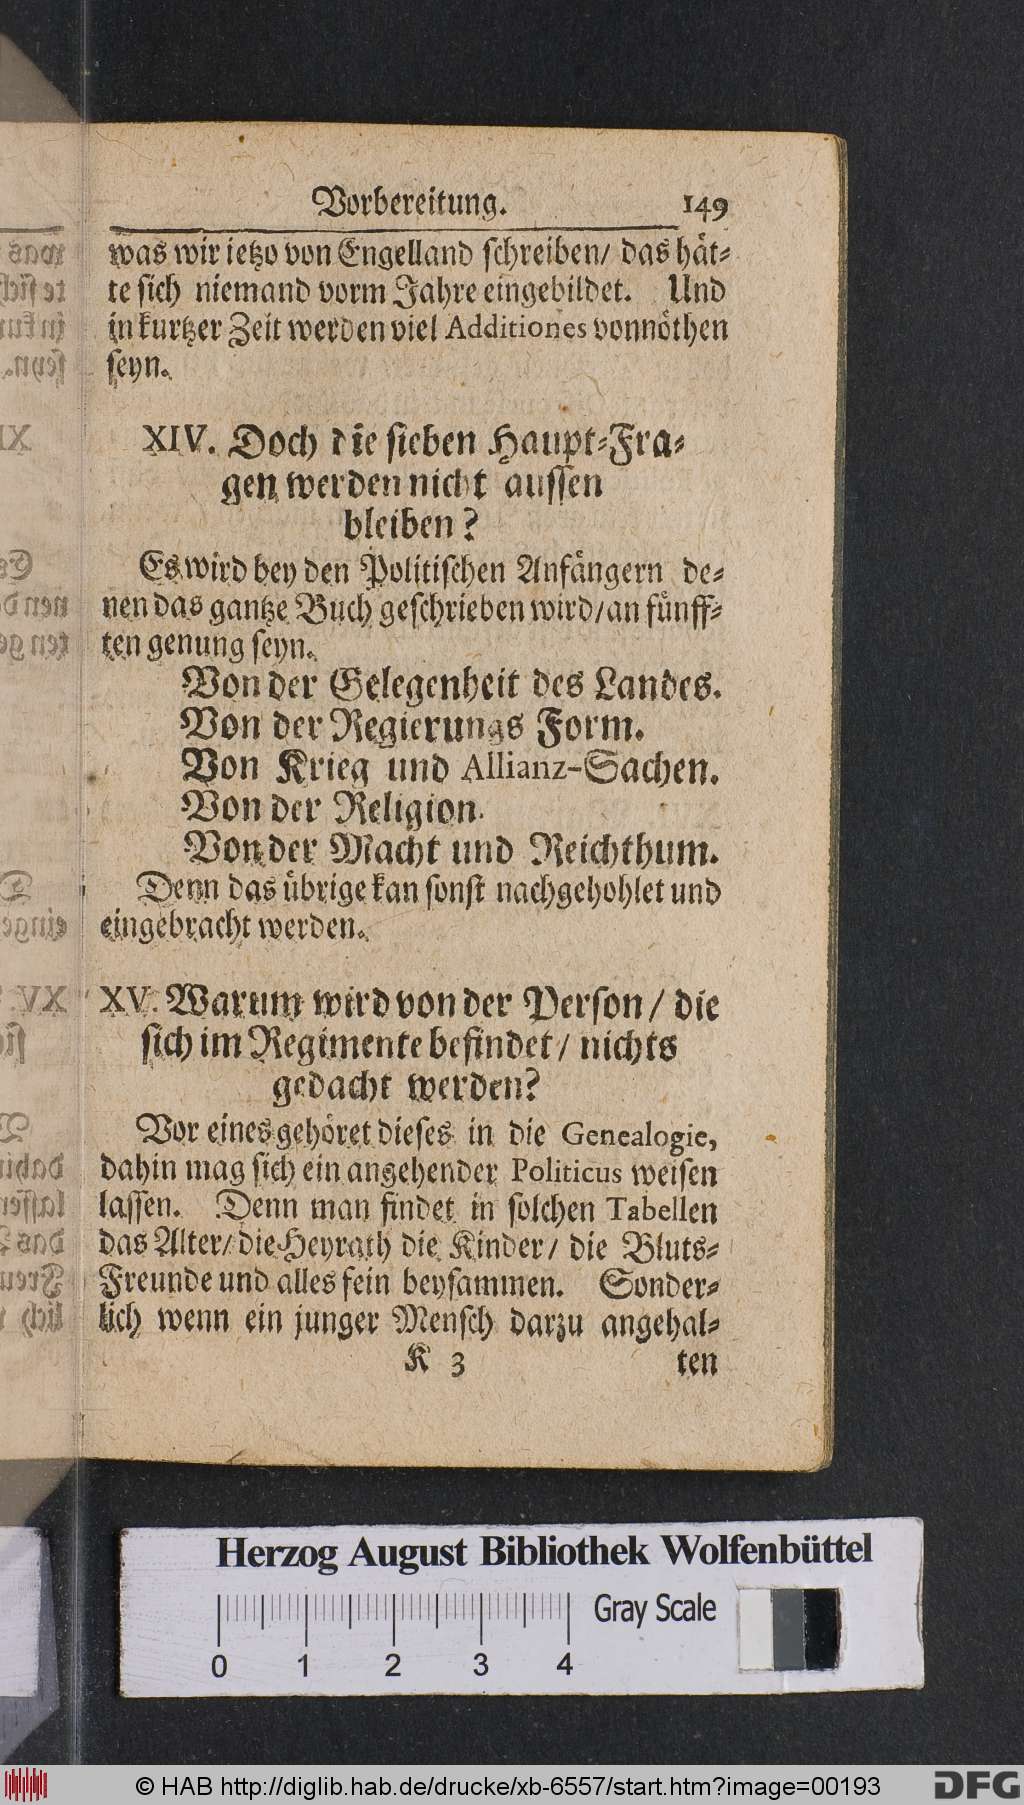 Vorbereitung. 149
was wir ietzo von Engelland schreiben/ das håt-
te sich niemand vorm Jahre eingebildet. Und
in kurtzer Zeit werden viel Additiones vonnöthen
seyn.
XIV. Doch die sieben Haupt-Fra-
gen werden nicht aussen
bleiben?
Es wird bey den Politischen Anfängern de-
nen das gantze Buch geschrieben wird/ an fünff-
ten genung seyn.
Von der Gelegenheit des Landes.
Von der Regierungs Form.
Von Krieg und Allianz-Sachen.
Von der Religion.
Von der Macht und Reichthum.
Denn das übrige kan sonst nachgehohlet und
eingebracht werden.
XV. Warum wird von der Person/ die
sich im Regimente befindet/ nichts
gedacht werden?
Vor eines gehöret dieses in die Genealogie,
dahin mag sich ein angehender Politicus weisen
lassen. Denn man findet in solchen Tabellen
das Alter/ die Heyrath die Kinder/ die Bluts-
Freunde und alles fein beysammen. Sonder-
lich wenn ein junger Mensch darzu angehal-
K 3 ten
Herzog August Bibliothek Wolfenbüttel
Gray Scale
0 1 2 3 4
© HAB http://diglib.hab.de/drucke/xb-6557/start.htm?image=00193 DFG